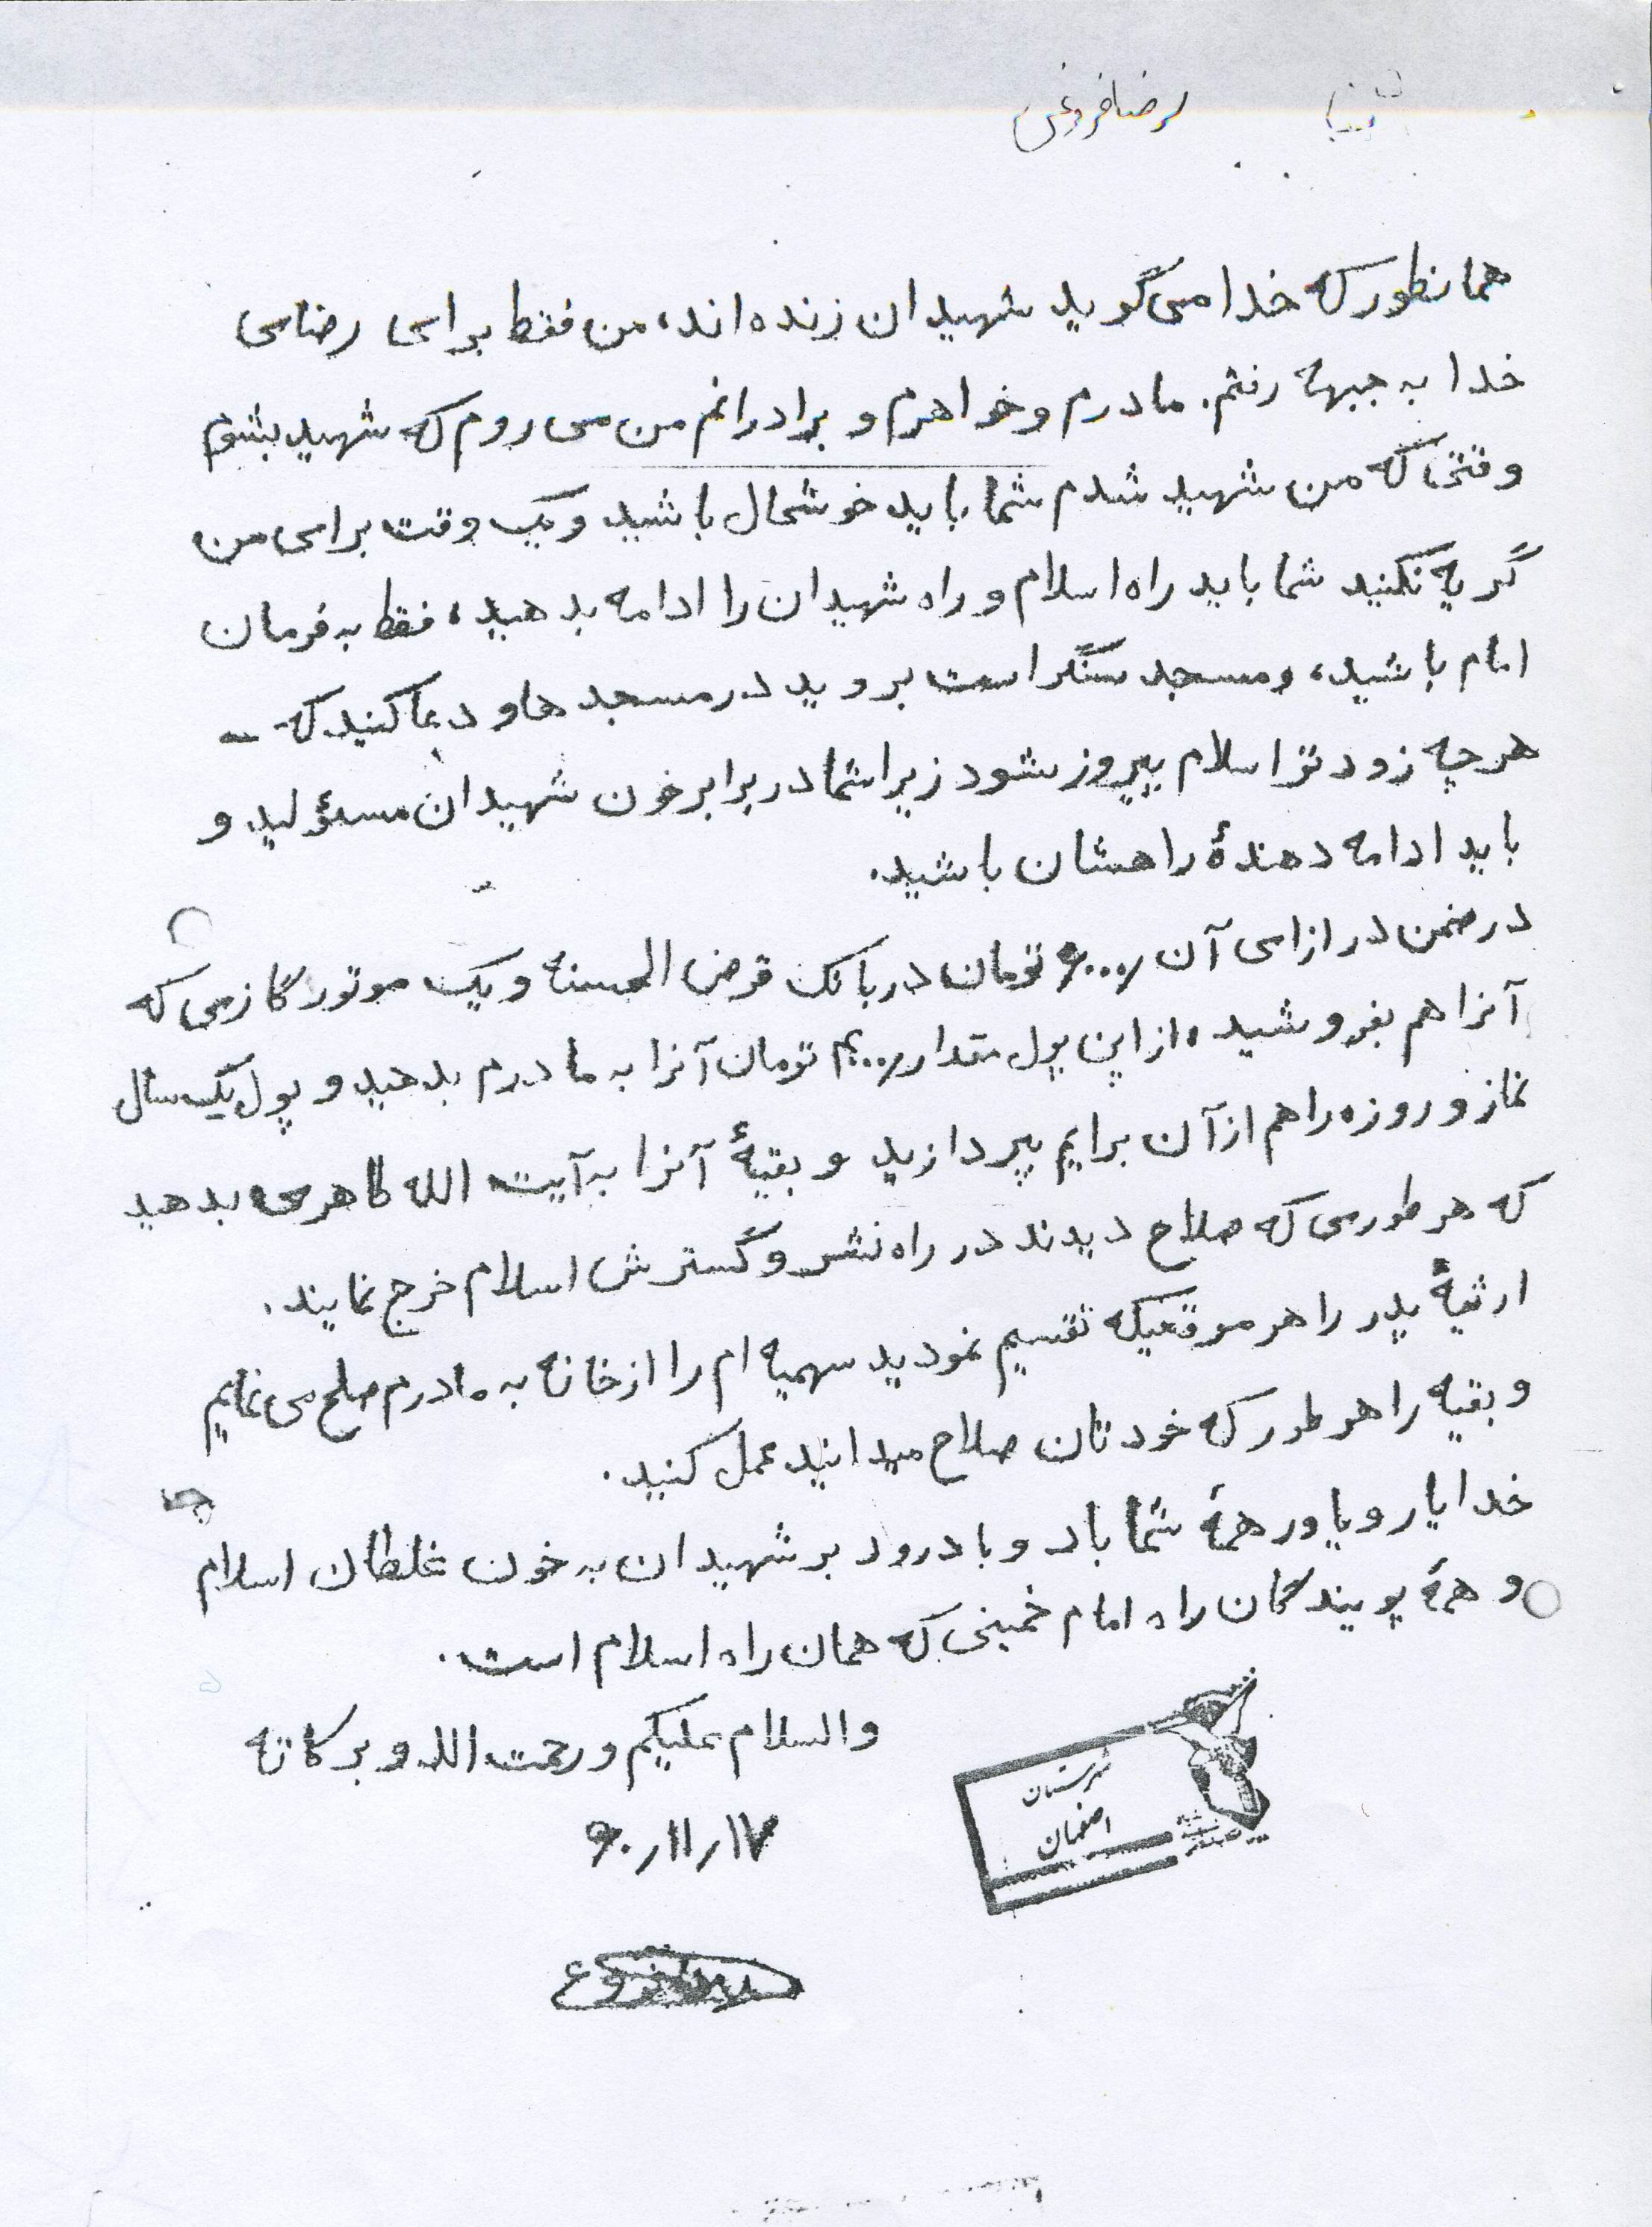 رضا فروغی
همانطور که خدا می گوید شهیدان زنده اند، من فقط برای رضای
خدا به جبهه رفتم. مادرم و خواهرم و برادرانم من می روم که شهید بشوم
وقتی که من شهید شدم شما باید خوشحال باشید و یک وقت برای من
گریه نکنید شما باید راه اسلام و راه شهیدان را ادامه بدهید، فقط به فرمان
امام باشید، و مسجد سنگر است بروید در مسجدها و دعا کنید که -
هرچه زودتر اسلام پیروز شود زیرا شما در برابر خون شهیدان مسئولید و
باید ادامه دهندهٔ راهشان باشید.
در ضمن در ازای آن ۶۰۰۰/ تومان در بانک قرض الحسنه و یک موتور گازی که
آنرا هم بفروشید، از این پول مقدار ۴۰۰۰/ تومان آنرا به مادرم بدهید و پول یک سال
نماز و روزه را هم از آن برایم بپردازید و بقیهٔ آنرا به آیت الله طاهری بدهید
که هر طوری که صلاح دیدند در راه نشر و گسترش اسلام خرج نمایند.
ارثیهٔ پدر را هر موقعیکه تقسیم نمودید سهمیه ام را از خانه به مادرم صلح می نمایم
و بقیه را هر طور که خودتان صلاح میدانید عمل کنید.
خدا یار و یاور همهٔ شما باد و با درود بر شهیدان به خون غلطان اسلام
و همهٔ پویندگان راه امام خمینی که همان راه اسلام است.
والسلام علیکم و رحمت الله و برکاته
۶۰/۱۱/۱۷
شهرستان
اصفهان